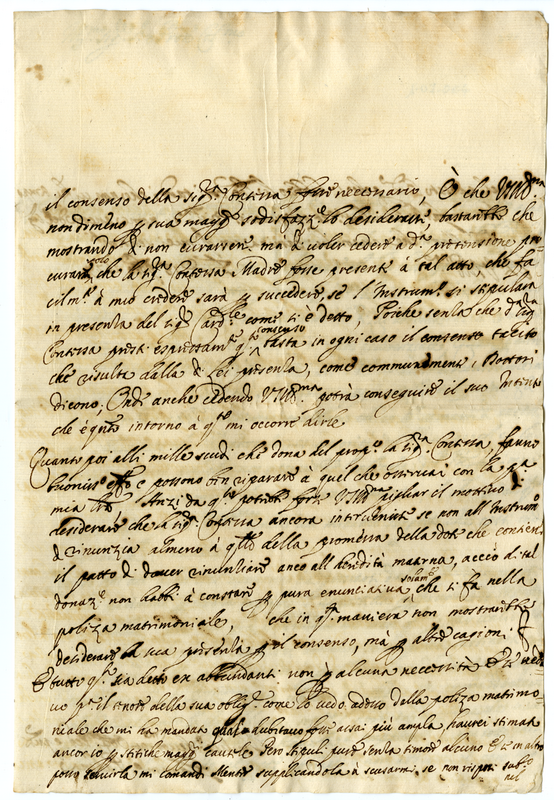 il consenso della sig.ra Contessa fusse necessario, È che VSIll.ma
nondimeno p sua magg.r sodisfaz.ne lo desiderasse, bastante che
mostrando di non curarsene, mà di voler cedere à d.a pretensione pro-
curare solo che la sig.ra Contessa Madre fosse presente à tal atto, che fa
cilm.te à mio credere sarà p succedere, se l'Instrum.to si stipularà
in presenza del sig.r Card.le come si è detto, Poiche senza che d.a sig.ra
Contessa presti espressam.te q.to consenso basta in ogni caso il consenso tacito
che risulta dalla di lei presenza, come communemente i Dottori
dicono, Onde anche cedendo VSIll.ma potrà conseguire il suo intento
che è q.nto intorno à q.to mi occorre dirle
Quanto poi alli mille scudi che dona del prop.o la sig.ra Contessa, fanno
buoniss.o eff.o e possono ben riparare à quel che osservai con la pa
mia, Anzi da q.to potrebbe forse VSIll.ma pigliar il motivo di
desiderare che la sig.ra Contessa ancora intervenisse se non all'Instrum.o
di rinuntia almeno à q.llo della promessa della dote che contiene
il patto di dover rinuntiare anco all'heredità materna, acciò di tal
donaz.e non habbi à constare p pura enunciativa solam.te che si fa nella
polizza matrimoniale, che in q.ta maniera non mostrarebbe
desiderare la sua presenza p il consenso, mà p altre cagioni
E tutto q.to sia detto ex abbundanti non p alcuna necessità
p il tenore della sua oblig.e come lo vedo adesso dalla polizza matrimo-
niale che mi ha mandata quale dubitavo fosse assai più ampla, havrei stimata
ancor io p stitiche magg.ri cautele. Però stipuli pure senza timore alcuno
posso servirla mi comandi Mentre supplicandola à scusarmi se non risposi subito
nel